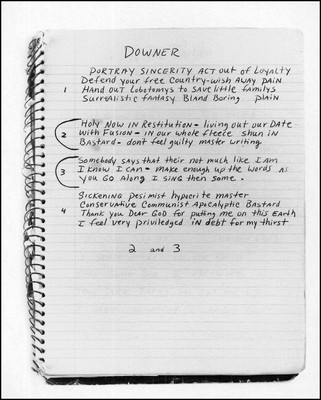 DOWNER
PORTRAY SINCERITY ACT out of LOYALTY
Defend your free Country-wish AWAY PAIN
1 Hand OUT lobotomys to save little familys
Surrealistic fantasy Bland Boring plain
Holy NOW IN Restitution - living out our DATE
2 With FUSION - IN our whole fleece shun in
BASTARD - don't feel guilty master writing
Somebody says that their not much like I am
3 I know I can - make enough up the words as
you go Along I sing then some.
Sickening pesimist hypocrite master
4 Conservative Communist Apocalyptic Bastard
Thank you Dear God for putting me on this Earth
I feel very priviledged in debt for my thirst
2 and 3